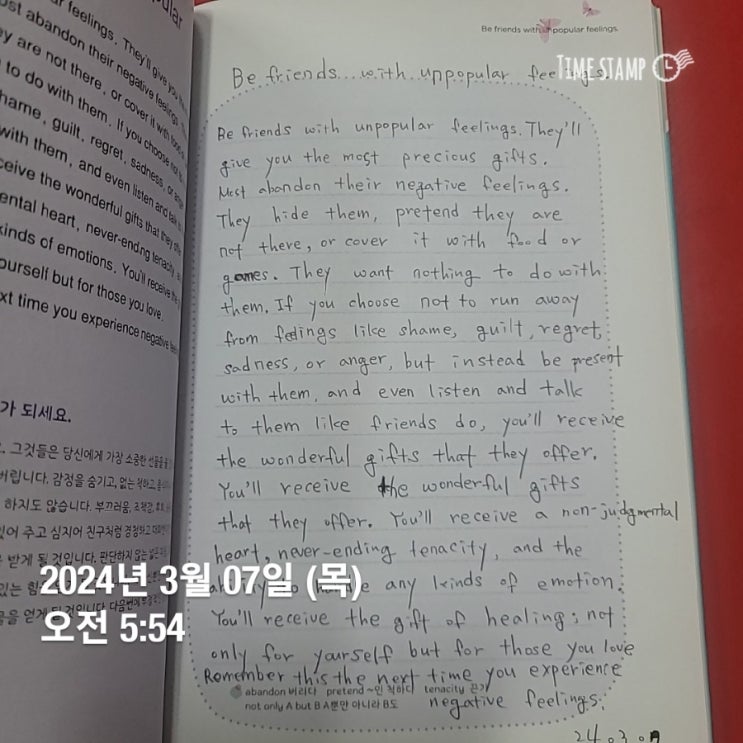 Be friends with unpopular feelings.
TIME STAMP
Be friends...with unpopular feelings.
Be friends with unpopular feelings. They'll
give you the most precious gifts.
Most abandon their negative feelings.
They hide them, pretend they are
not there, or cover it with food or
games. They want nothing to do with
them. If you choose not to run away
from feelings like shame, guilt, regret,
sadness, or anger, but instead be present
with them, and even listen and talk
to them like friends do, you'll receive
the wonderful gifts that they offer.
You'll receive the wonderful gifts
that they offer. You'll receive a non-judgmental
heart, never-ending tenacity, and the
any kinds of emotion.
You'll receive the gift of healing; not
only for yourself but for those you love
Remember this the next time you experience
negative feelings.
abandon 버리다 pretend ~인 척하다 tenacity 끈기
not only A but B A뿐만 아니라 B도
24.3.07
feelings. They'll give you
st abandon their negative feelings.
ey are not there, or cover it with
to do with them. If you choose
hame, guilt, regret, sadness, or
with them, and even listen and talk
ceive the wonderful gifts that they
ental heart, never-ending tenacity,
kinds of emotions. You'll receive the
ourself but for those you love.
xt time you experience negative
가 되세요.
그것들은 당신에게 가장 소중한 선물을
버립니다. 감정을 숨기고, 없는 척하고
하지도 않습니다. 부끄러움, 죄책감,
있어 주고 심지어 친구처럼
받게 될 것입니다. 판단하지 않는
있는 힘
2024년 3월 07일 (목)
오전 5:54